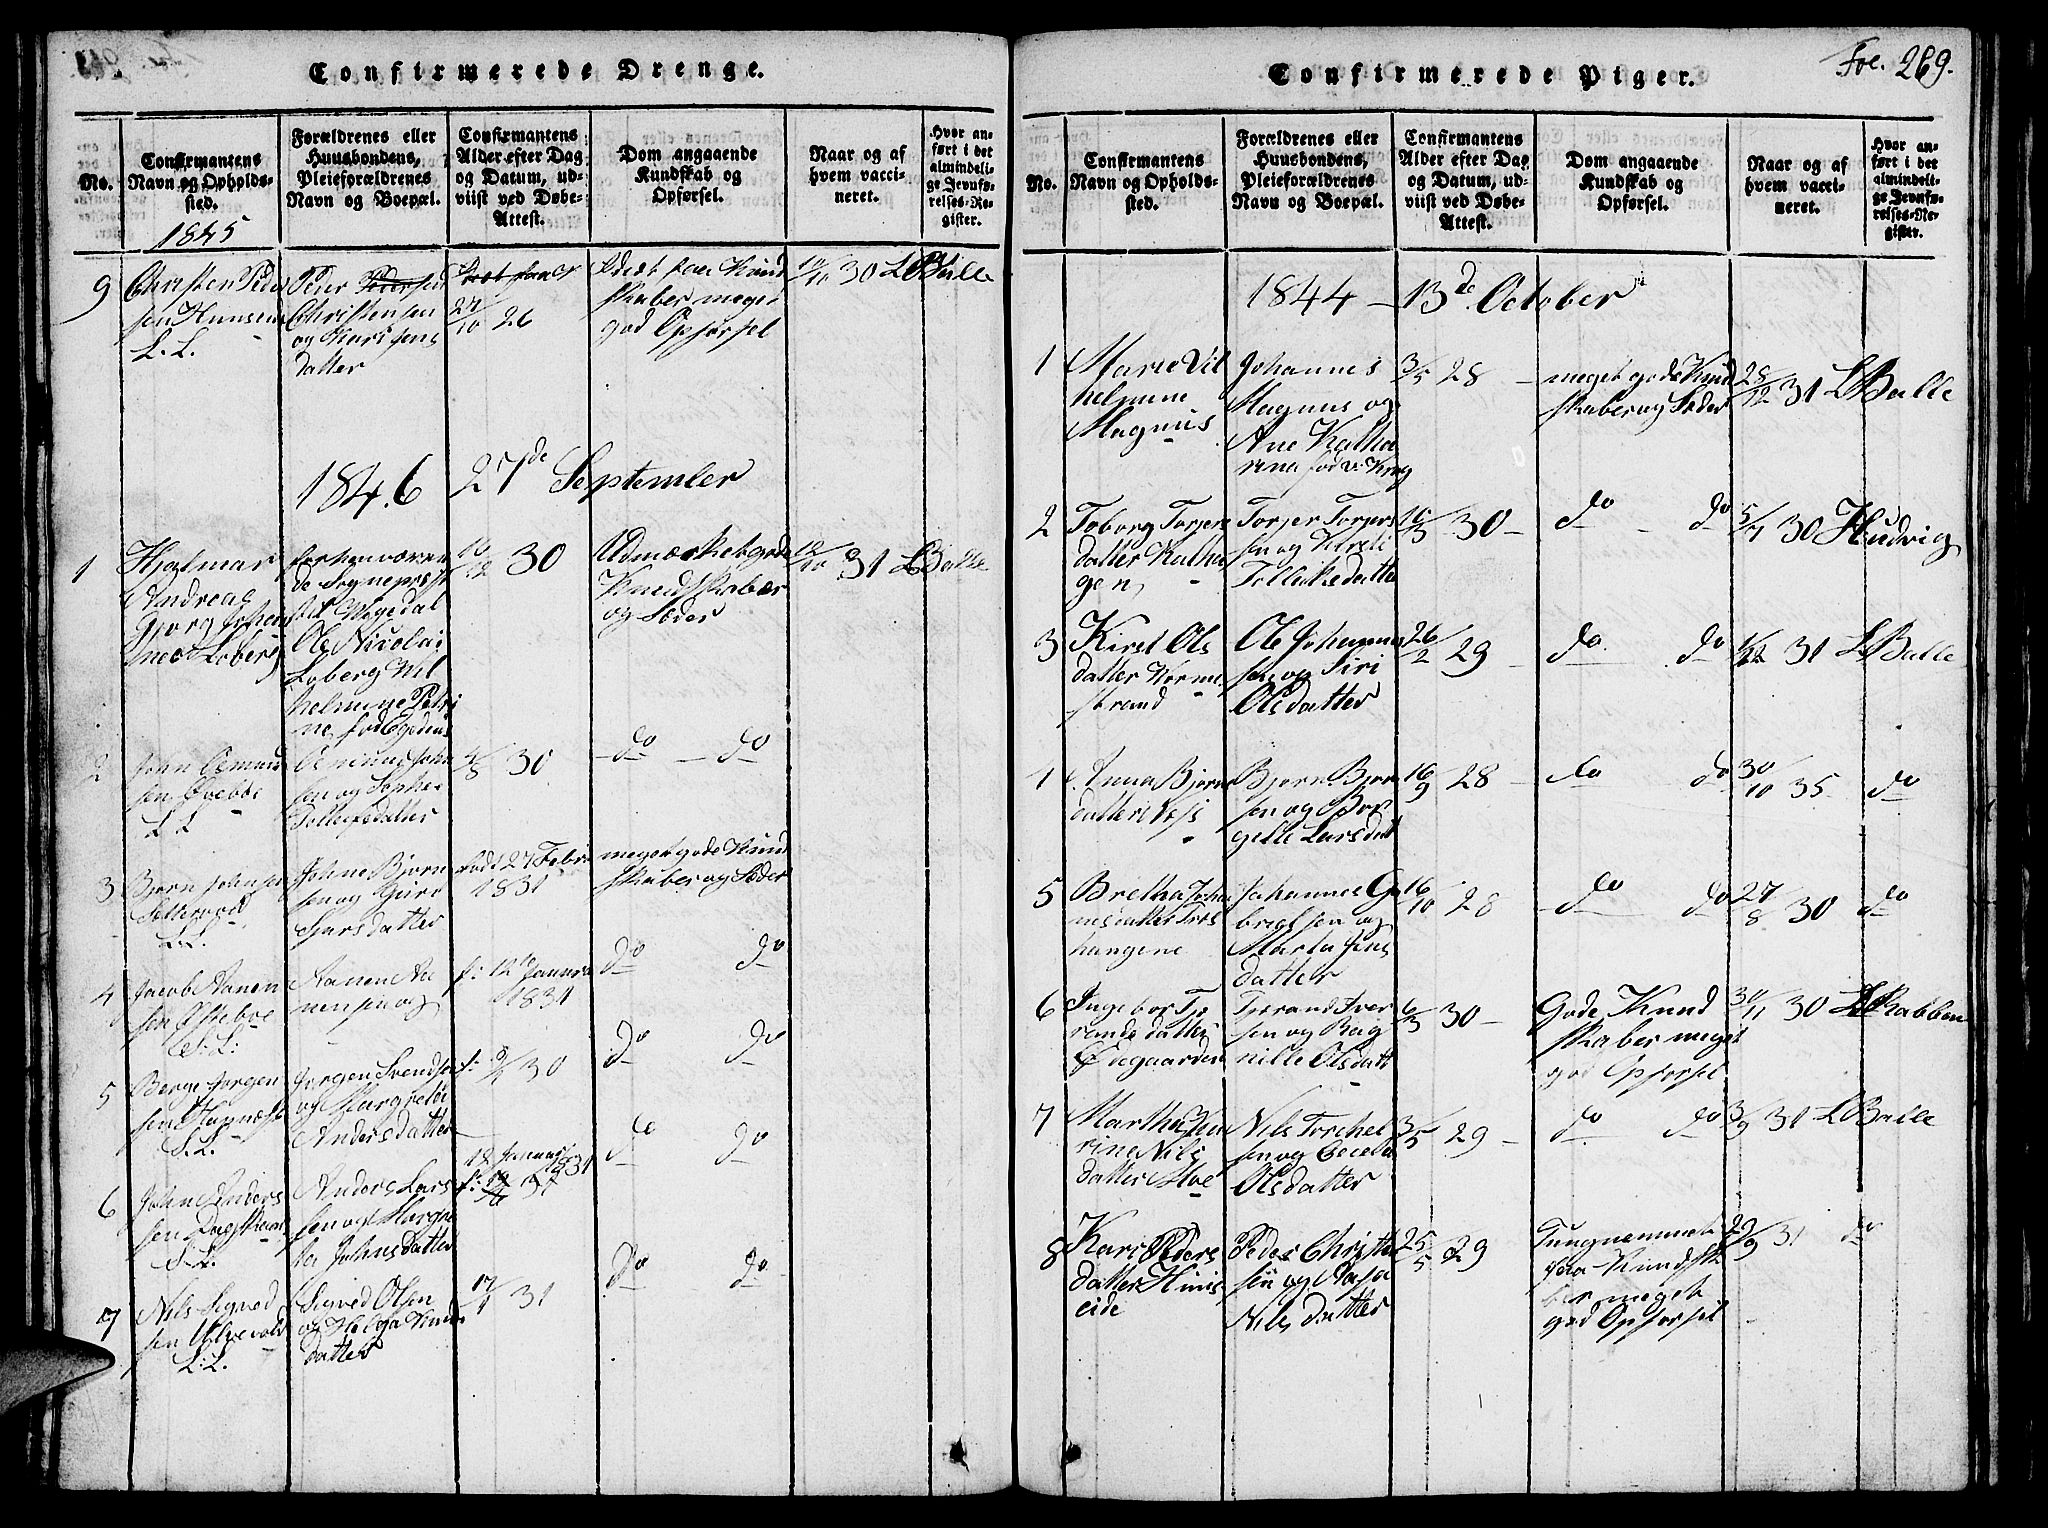 Confirmerede Drenge.
No.
Confirmantens
Navn og Opholds-
sted.
1845
Forældrenes eller
Huusbondens,
Pleieforældrenes
Navn og Boepæl.
Confirmantens
Alder efter Dag
og Datum, ud-
viist ved Døbe-
Attest.
Dom angaaende
Kundskab og
Opførsel.
Naar og af
hvem vacci-
neret.
Hvor an-
ført i det
almindeli-
ge Jevnfø-
relses-Re-
gister.
9
Christen Peder
sen
L. L.
Peder Pedersen
Christensen
og Kari Jens
datter
27/10 26
Kund
skaber meget
god Opførsel
30 L Balle
1846 27de September
1
Hjalmar
Andreas
Gjørg Johan
Loberg
forhenværen
de Sognepræst
Ole Nicolai
Loberg Vil
helmine Petri
ne fød Egedius
30
Udmærket gode
Kundskaber
og Sæder
12/10 31 L Balle
2
John Osmund
sen
L L
Osmund John
sen og Sophie
Tollefsdatter
4/8 30
do do
3
Bjørn Johnsen
L.L.
Johne Bjørn
sen og Guro
datter
født 27 Febr
1831
meget gode Kund
skaber og Sæder
4
Jacob Aanen
sen Østebøe
L: L:
Aanen Aa
nensen og
f: 12te Januar
1831
do do
5
Berge Jørgen
sen
L.L.
Jørgen Svendsen
og Margrethe
Andersdatter
f: 30
do do
6
John Anders
sen
L.L.
Anders Lars
sen og Margre
ta Johnsdatter
12 Januar
1831
do do
7
Nils Sigved
sen
L.L.
Sigved Olsen
og Helga Knuds
datter
17/1 31
do do
Fol. 269.
Confirmerede Piger.
No.
Confirmantens
Navn og Opholds-
sted.
Forældrenes eller
Huusbondens,
Pleieforældrenes
Navn og Boepæl.
Confirmantens
Alder efter Dag
og Datum, ud-
viist ved Døbe-
Attest.
Dom angaaende
Kundskab og
Opførsel.
Naar og af
hvem vacci-
neret.
Hvor an-
ført i det
almindeli-
ge Jevnfø-
relses-Re-
gister.
1844 - 13de October
1
Marie Vil
helmine
Magnus
Johannes
Magnus og
Ane Katha
rina fød v: Krog
3/5 28
meget gode Kund
skaber og Sæder
28/12 31 L Balle
2
Toborg Torjers
datter
Torjer Torjers
sen og Kirsti
datter
30
do do
5/7 30 Hudvig
3
Kirst Ols
datter
strand
Ole Johannes
sen og Siri
Olsdatter
26/2 29
do do
31 L Balle
Anna Bjørns
datter
Bjørn Bjørn
sen og Bor
gelle Larsdatt
16/9 28
do do
30/10 35 do
5
Bretha Johan
nesdatter Tros
hangene
Johannes Ga
brielsen og
Marta Jens
datter
16/10 28
do do
27/8 30 do
6
Ingebor Tje
randsdatter
Ødegaarden
Tjerand Iver
sen og Rag
nille Olsdatt
6/3 30
Gode Kund
skaber meget
god Opførsel
30/11 30 Rabben
7
Martha Ka
rine Nils
datter Moe
Nils Torchel
sen og Cecelia
Olsdatter
3/5 29
do do
3/9 31 L Balle
8
Kari Peders
datter Himes
eide
Peder Christen
sen og Aasa
Nilsdatter
25/5 29
Tungnemmet
paa Kundska
ber meget
god Opførsel
29/9 31 do